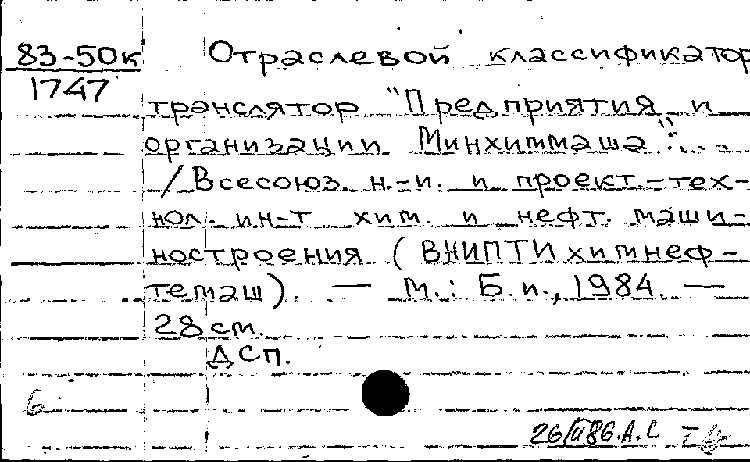 83-50к Отраслевой классификатор
1747
транслятор "Предприятия и
организации Минхиммаша":
/ Всесоюз. н.-и. и проект.-тех-
нол. ин-т хим. и нефт. маши-
ностроения (ВНИПТИхимнеф-
темаш). — М.: Б. и., 1984. —
28 см.
ДСП.
6